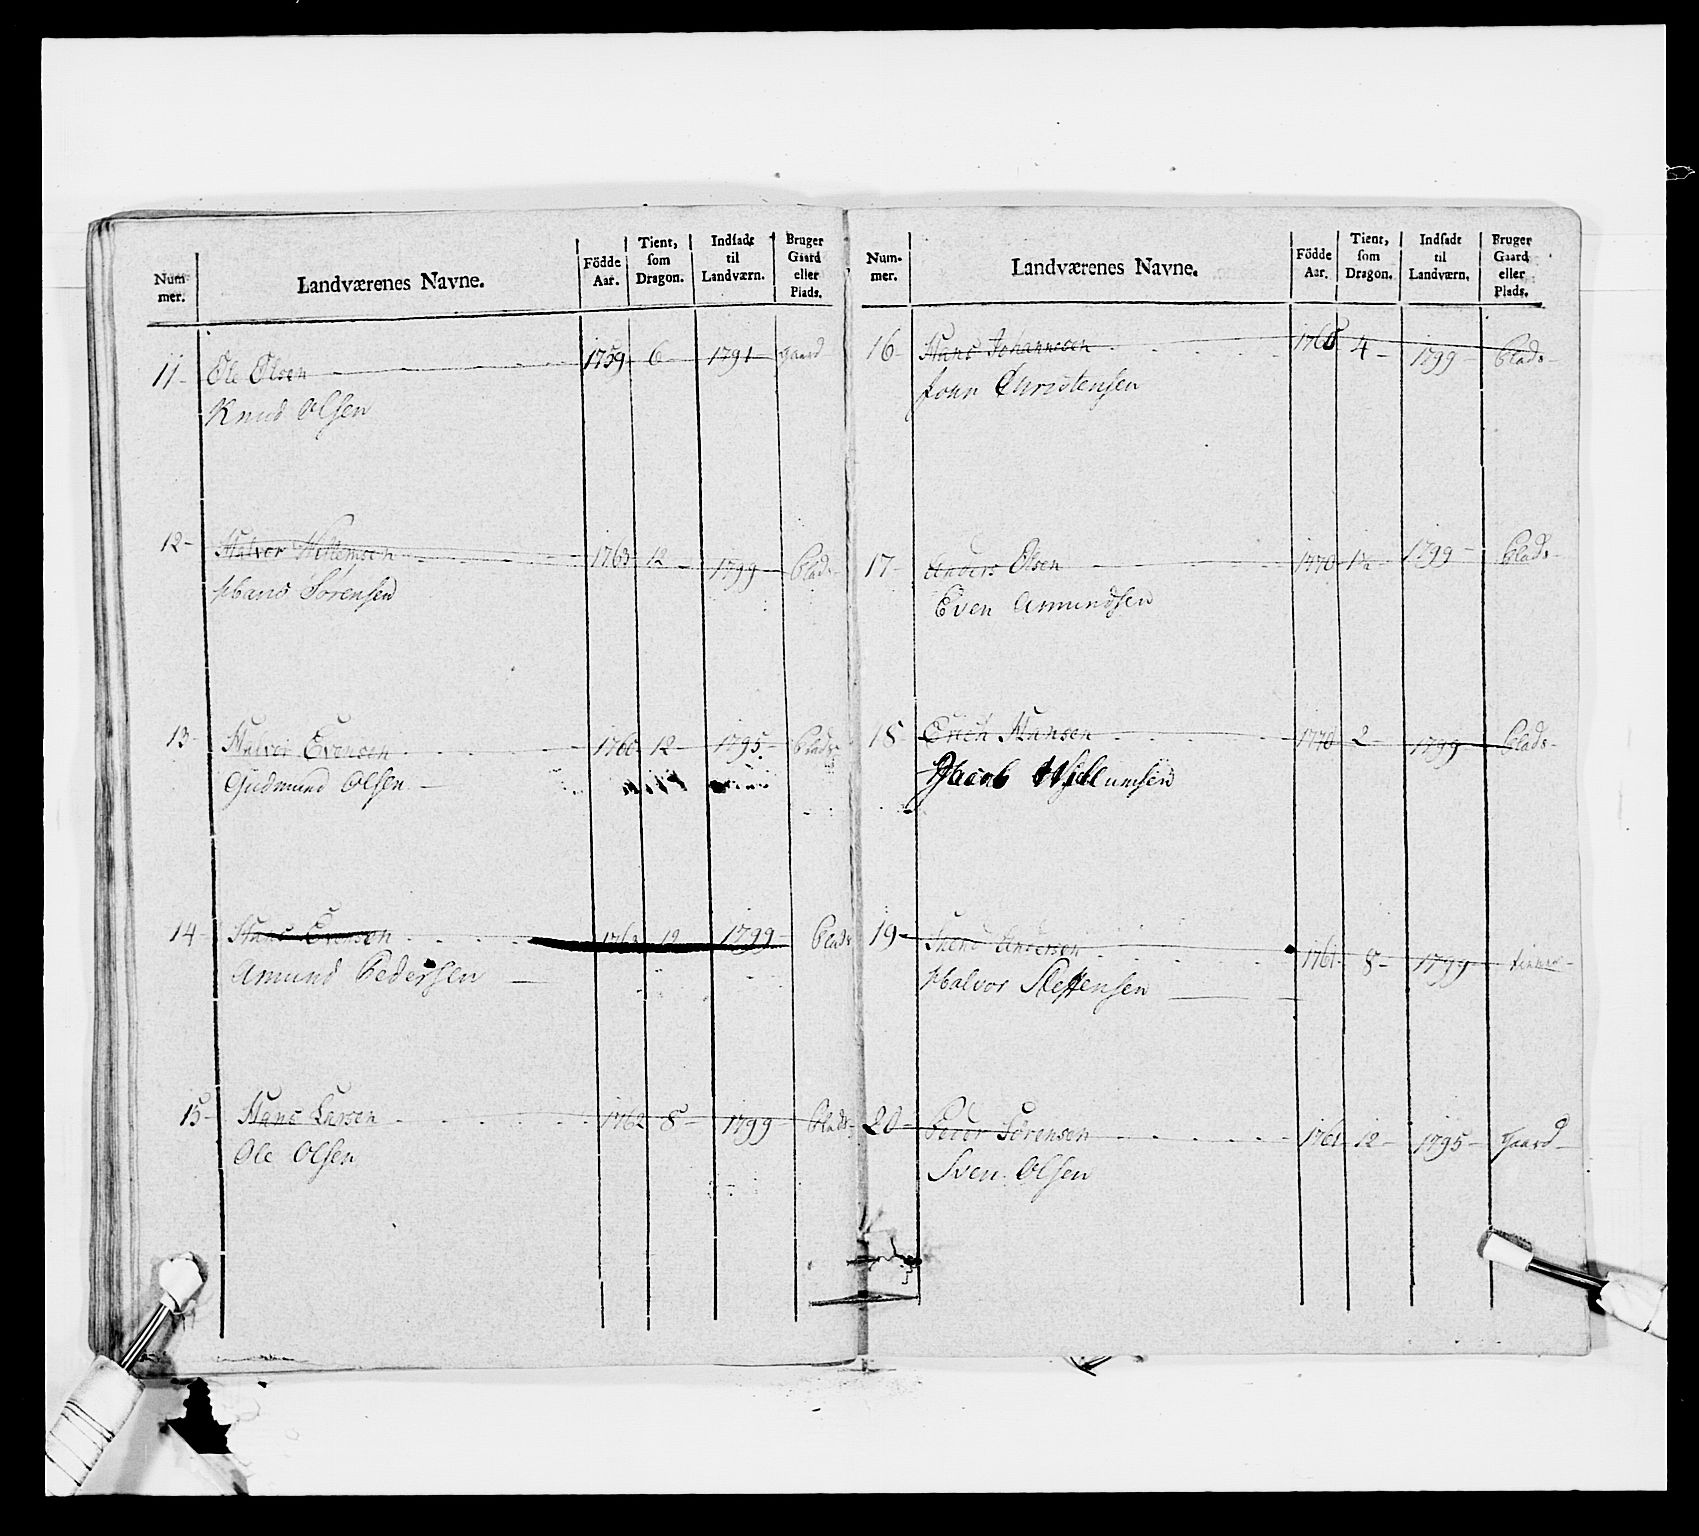 Num-
mer.
Landværenes Navne.
Födde
Aar.
Tient,
som
Dragon.
Indsadt
til
Landværn.
Bruger
Gaard
eller
Plads.
11- Ole Olsen 1759- 6- 1791- Gaard
Knud Olsen
12- Halvor 1763- 12- 1799- Plads-
Hans Sörensen
13- Halvor Evensen 1760- 12- 1795- Plads-
Gudmund Olsen
14- Hans Evensen 1763 12- 1799- Plads
Amund Pedersen
15- Hans Larsen 1762 8- 1799- Plads-
Ole Olsen
Num-
mer.
Landværenes Navne.
Födde
Aar.
Tient,
som
Dragon.
Indsadt
til
Landværn.
Bruger
Gaard
eller
Plads.
16- Hans Johannesen 4- 1799- Plads-
John Christensen
17- Anders Olsen 1770- 1799- Plads-
Even Amundsen
18 Erich Hansen 1770- 2- 1799- Plads-
Jacob Willumsen
19- Andersen 1761- 8- 1799-
Halvor Steffensen
20- Peder Sörensen 1761- 12- 1795- Gaard-
Sven Olsen